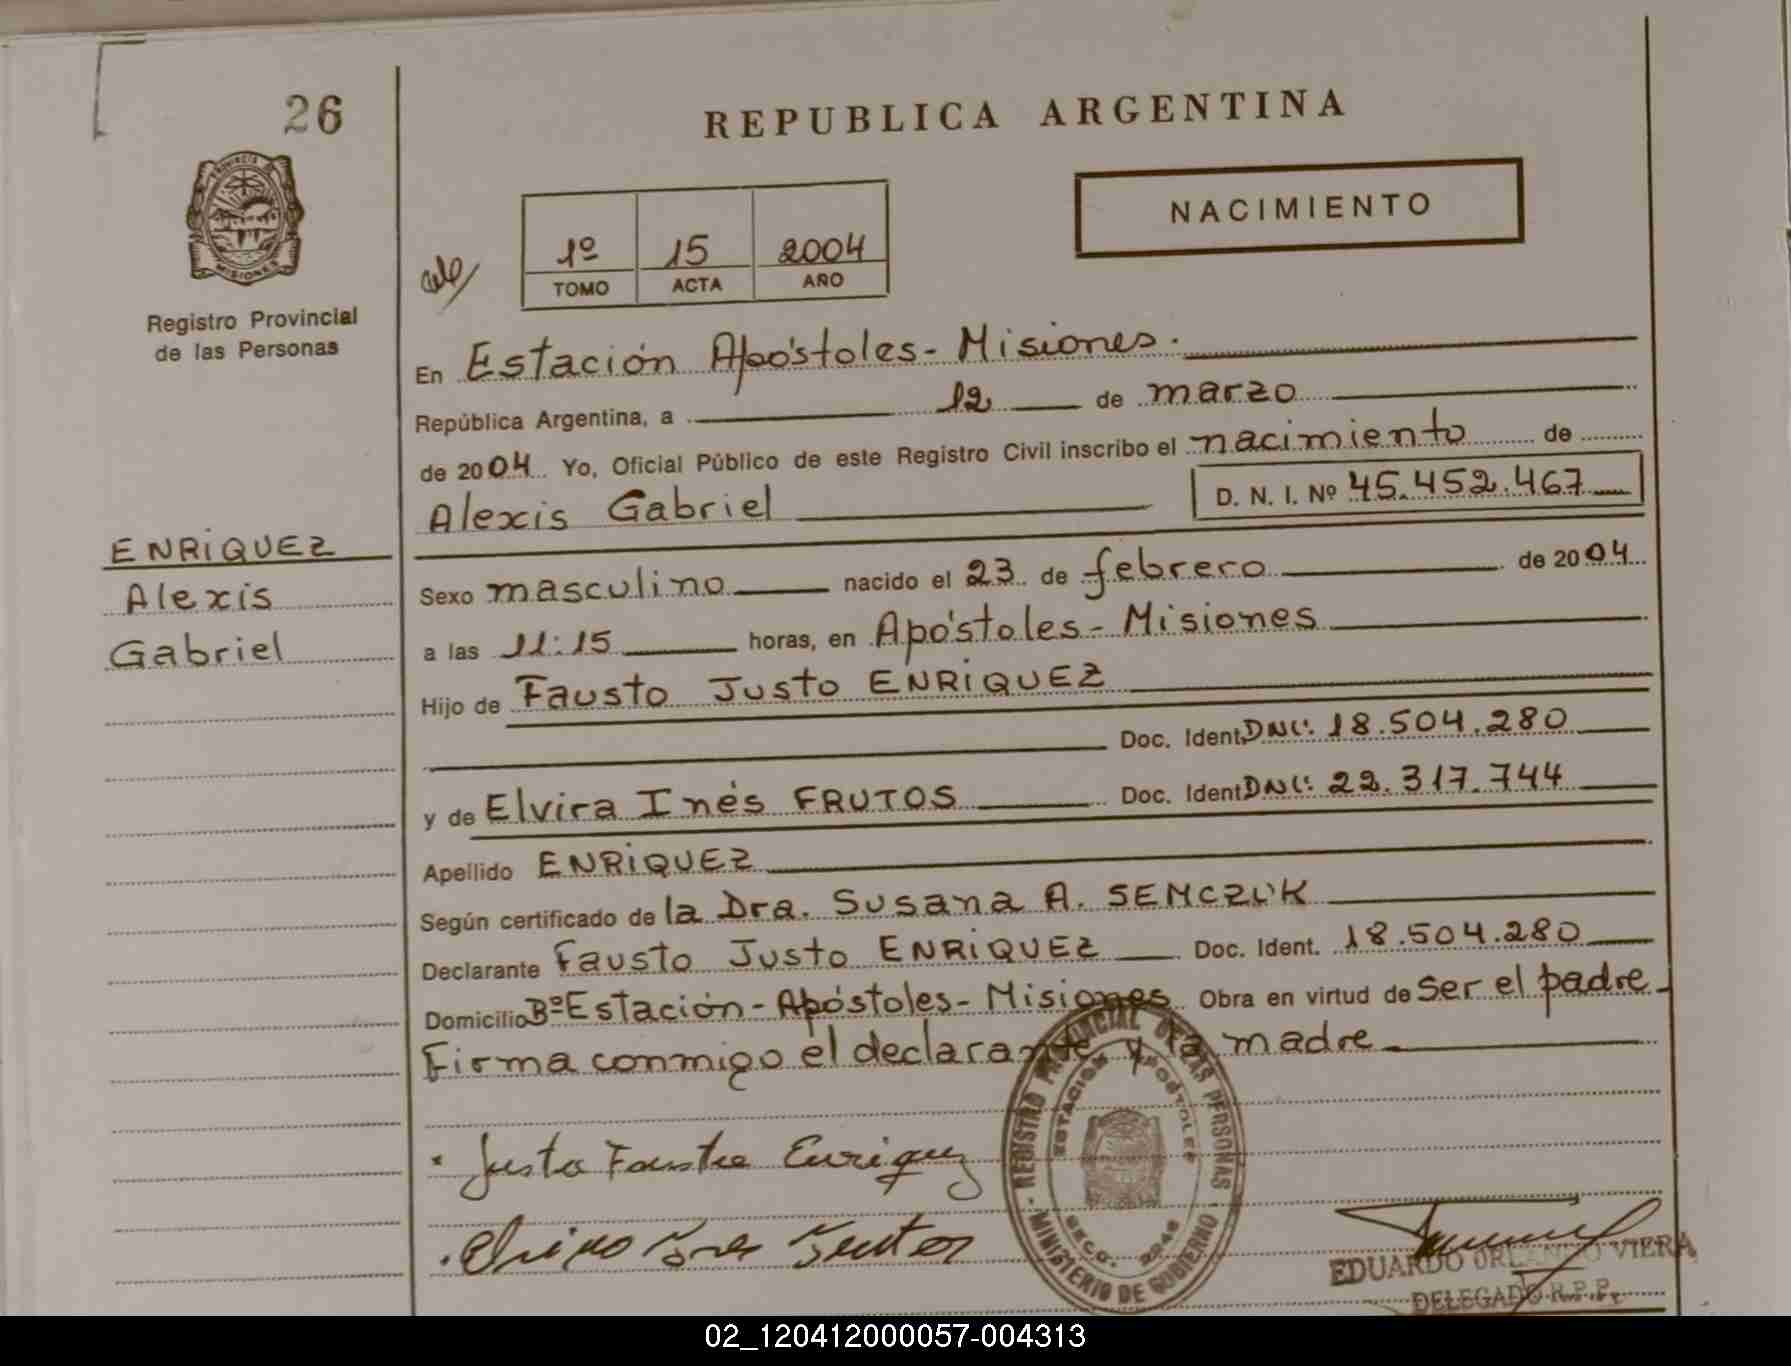 26
REPUBLICA ARGENTINA
PROVINCIA DE
MISIONES
NACIMIENTO
1º 15 2004
TOMO ACTA AÑO
Registro Provincial
de las Personas
En Estación Apóstoles - Misiones.
República Argentina, a 12 de marzo
de 2004 Yo, Oficial Público de este Registro Civil inscribo el nacimiento de
Alexis Gabriel D. N. I. Nº 45.452.467
ENRIQUEZ
Alexis
Gabriel
Sexo masculino nacido el 23 de febrero de 2004
a las 11:15 horas, en Apóstoles - Misiones
Hijo de Fausto Justo ENRIQUEZ
Doc. Ident. DNI: 18.504.280
y de Elvira Inés FRUTOS Doc. Ident DNI: 22.317.744
Apellido ENRIQUEZ
Según certificado de la Dra. Susana A. SEMCZUK
Declarante Fausto Justo ENRIQUEZ Doc. Ident. 18.504.280
Domicilio Bº Estación - Apóstoles - Misiones Obra en virtud de ser el padre -
Firma conmigo el declarante y la madre
Justo Fausto Enriquez
Elvira Ines Frutos
REGISTRO PROVINCIAL DE LAS PERSONAS
ESTACION APOSTOLES
MINISTERIO DE GOBIERNO
EDUARDO ORLANDO VIERA
DELEGADO R.P.P.
02_120412000057-004313